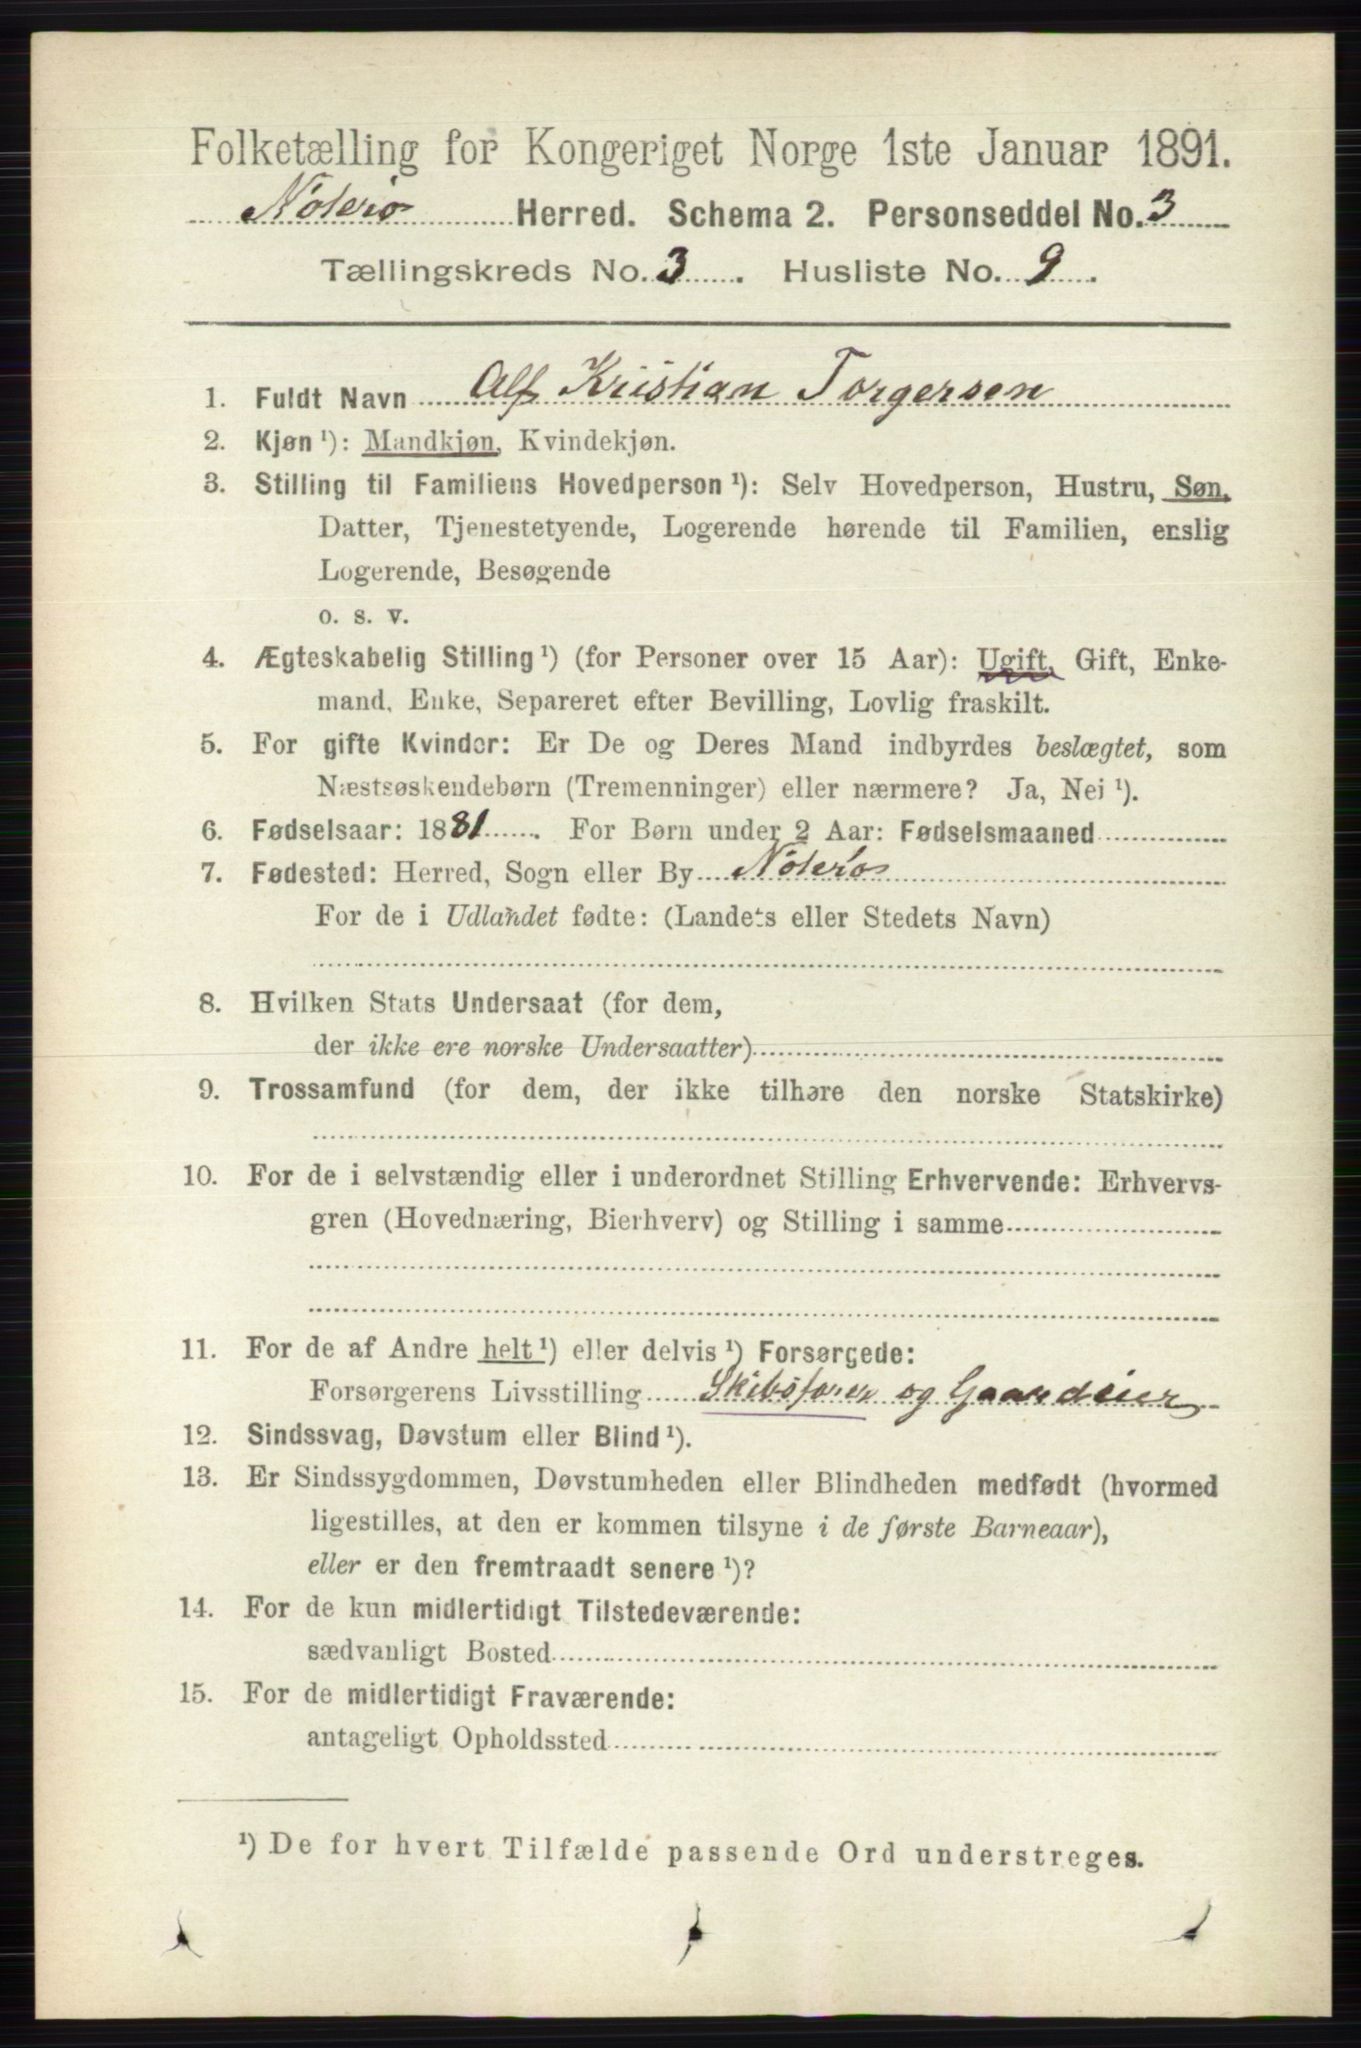 Folketælling for Kongeriget Norge 1ste Januar 1891.
Nøterø Herred. Schema 2. Personseddel No. 3
Tællingskreds No. 3. Husliste No. 9.
1. Fuldt Navn Alf Kristian Torgersen
2. Kjøn ¹): Mandkjøn, Kvindekjøn.
3. Stilling til Familiens Hovedperson ¹): Selv Hovedperson, Hustru, Søn,
Datter, Tjenestetyende, Logerende hørende til Familien, enslig
Logerende, Besøgende
o. s. v.
4. Ægteskabelig Stilling ¹) (for Personer over 15 Aar): Ugift, Gift, Enke-
mand, Enke, Separeret efter Bevilling, Lovlig fraskilt.
5. For gifte Kvinder: Er De og Deres Mand indbyrdes beslægtet, som
Næstsøskendebørn (Tremenninger) eller nærmere? Ja, Nei ¹).
6. Fødselsaar: 1881. For Børn under 2 Aar: Fødselsmaaned
7. Fødested: Herred, Sogn eller By Nøterø
For de i Udlandet fødte: (Landets eller Stedets Navn)
8. Hvilken Stats Undersaat (for dem,
der ikke ere norske Undersaatter)
9. Trossamfund (for dem, der ikke tilhøre den norske Statskirke)
10. For de i selvstændig eller i underordnet Stilling Erhvervende: Erhvervs-
gren (Hovednæring, Bierhverv) og Stilling i samme
11. For de af Andre helt ¹) eller delvis ¹) Forsørgede:
Forsørgerens Livsstilling Skibsfører og Gaardeier
12. Sindssvag, Døvstum eller Blind ¹).
13. Er Sindssygdommen, Døvstumheden eller Blindheden medfødt (hvormed
ligestilles, at den er kommen tilsyne i de første Barneaar),
eller er den fremtraadt senere ¹)?
14. For de kun midlertidigt Tilstedeværende:
sædvanligt Bosted
15. For de midlertidigt Fraværende:
antageligt Opholdssted
¹) De for hvert Tilfælde passende Ord understreges.